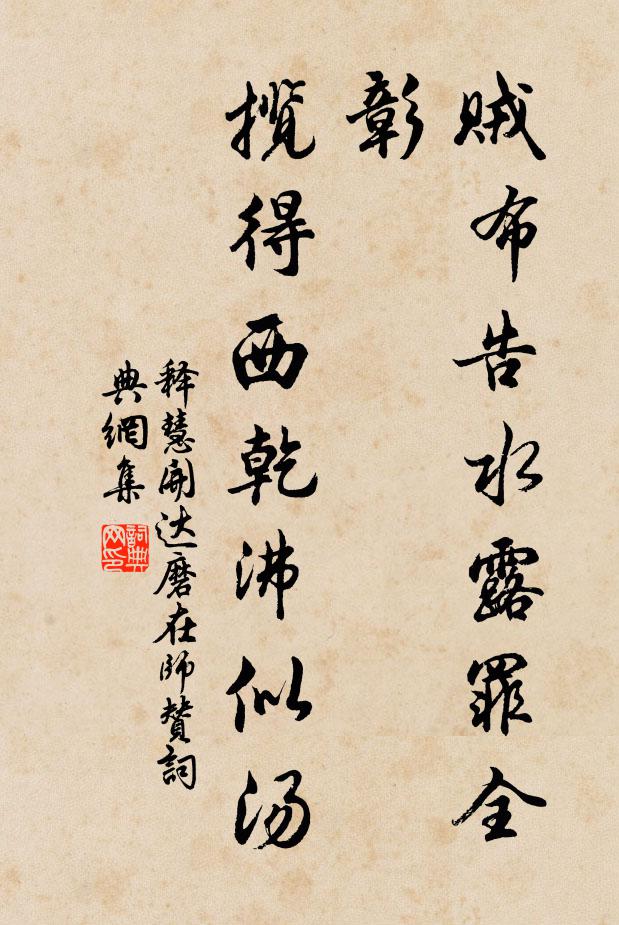 贼布告水露罪全
彰
揽得西乾沸似汤
释慧开达磨在师赞詞
典網集
詞典网印